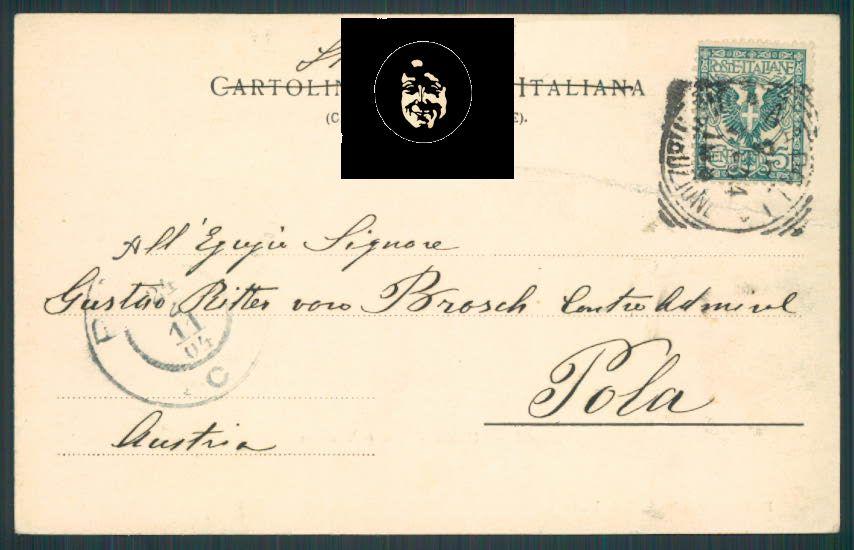 CARTOLIN ITALIANA
(C E).
POSTE ITALIANE
CENT. 5
All' Egregio Signore
Gustav Ritter von Brosch Contre Admiral
11
04
C
Pola
Austria